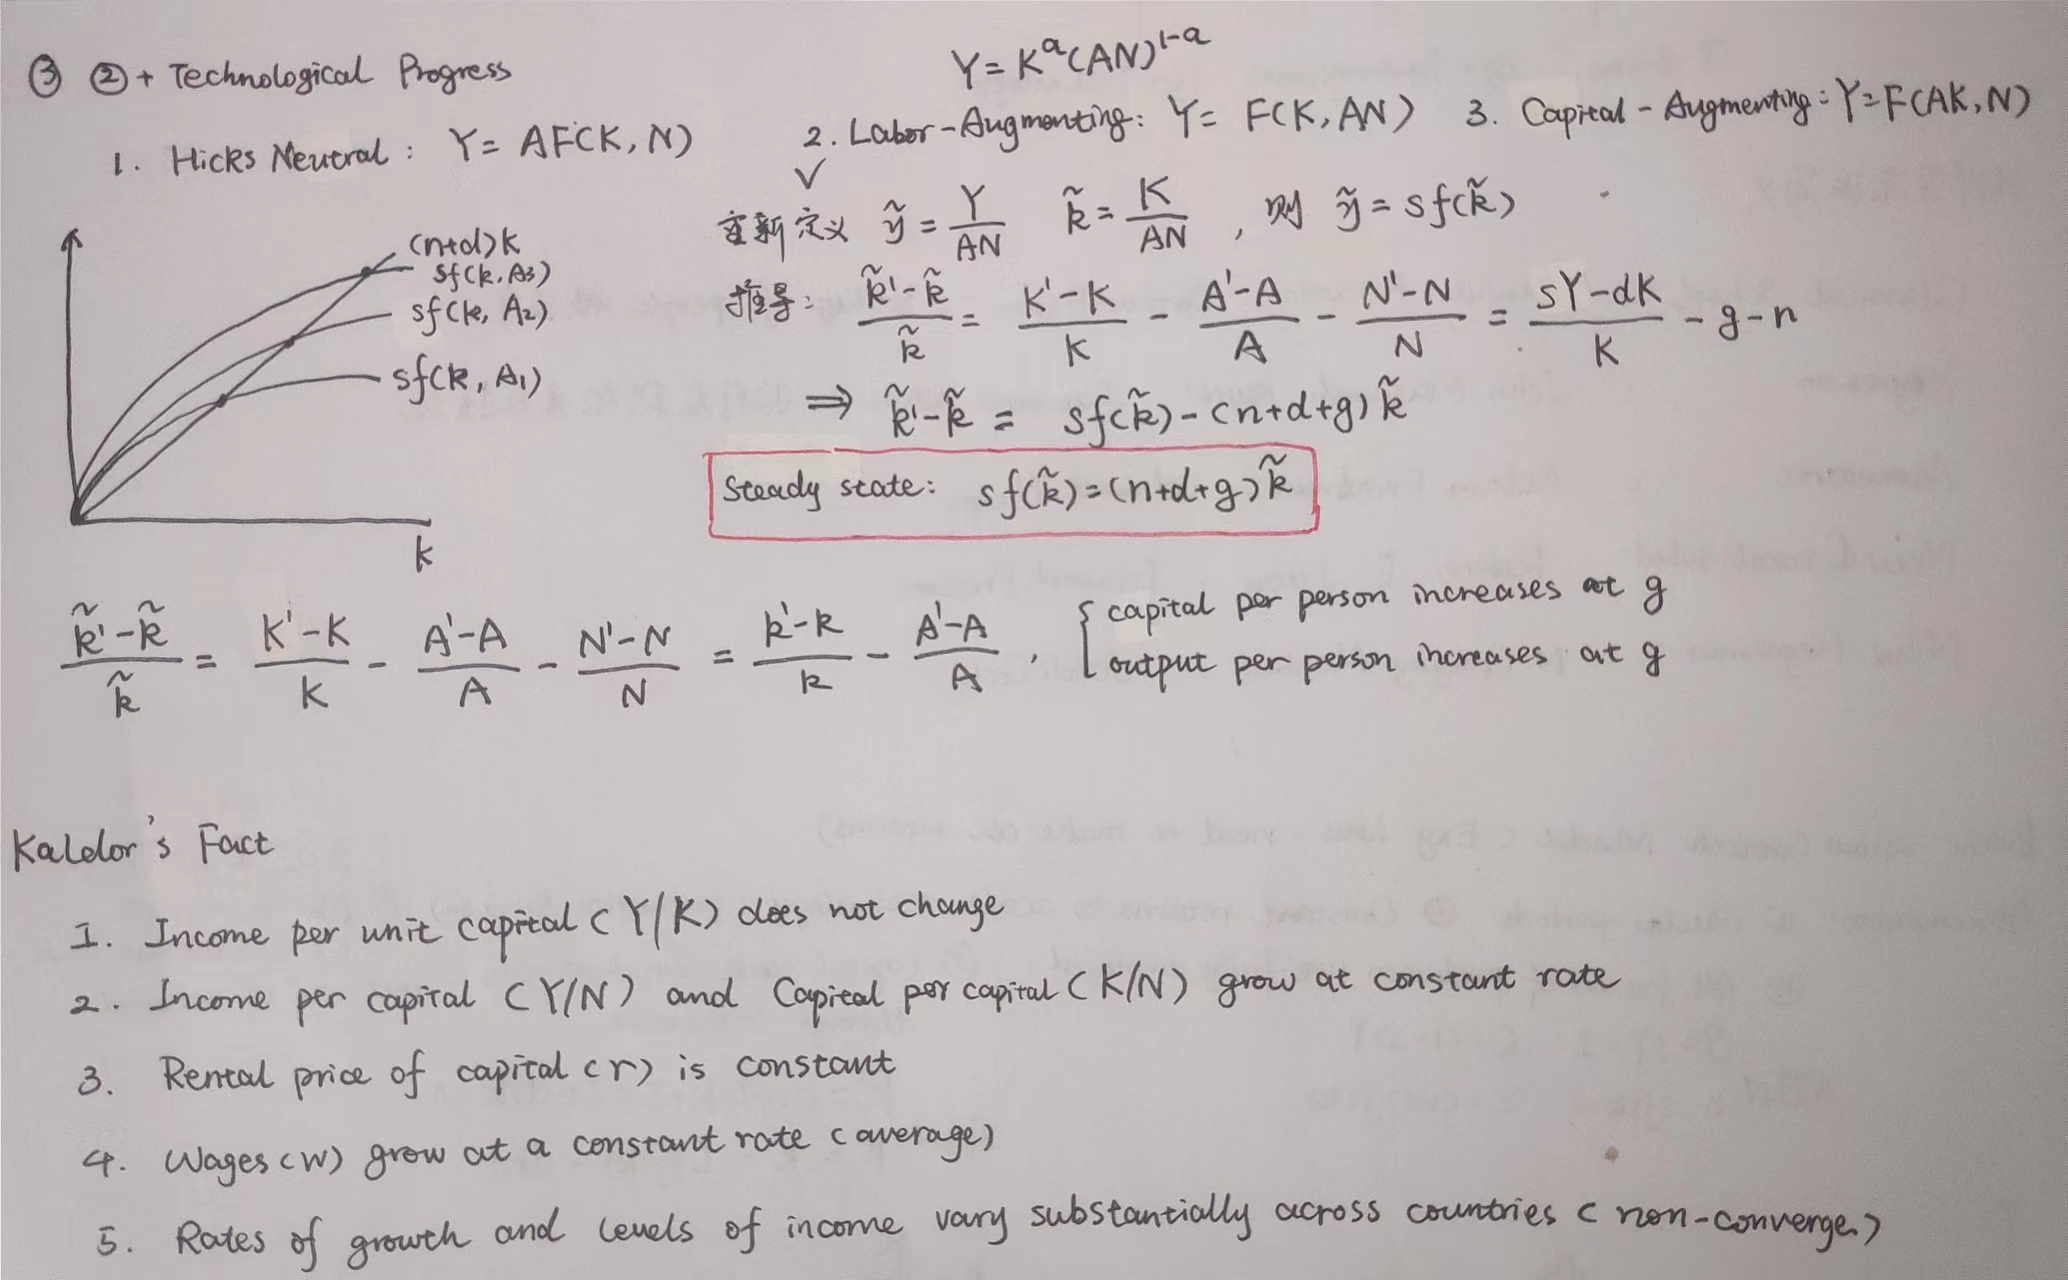 ③ ②+ Technological Progress
Y=K^a(AN)^{1-a}
1. Hicks Neutral: Y=AF(K,N)
2. Labor-Augmenting: Y=F(K,AN)
3. Capital-Augmenting: Y=F(AK,N)
✓
重新定义 ỹ=Y/AN k̃=K/AN, 则 ỹ=sf(k̃)
(n+d)k
sf(k,A3)
sf(k,A2)
sf(k,A1)
k
推导: (k̃'-k̃)/k̃ = (K'-K)/K - (A'-A)/A - (N'-N)/N = (sY-dK)/K - g-n
⇒ k̃'-k̃ = sf(k̃)-(n+d+g)k̃
Steady state: sf(k̃)=(n+d+g)k̃
(k̃'-k̃)/k̃ = (K'-K)/K - (A'-A)/A - (N'-N)/N = (k'-k)/k - (A'-A)/A,
{ capital per person increases at g
output per person increases at g
Kaldor's Fact
1. Income per unit capital (Y/K) does not change
2. Income per capital (Y/N) and Capital per capital (K/N) grow at constant rate
3. Rental price of capital (r) is constant
4. Wages (w) grow at a constant rate (average)
5. Rates of growth and levels of income vary substantially across countries (non-converge)